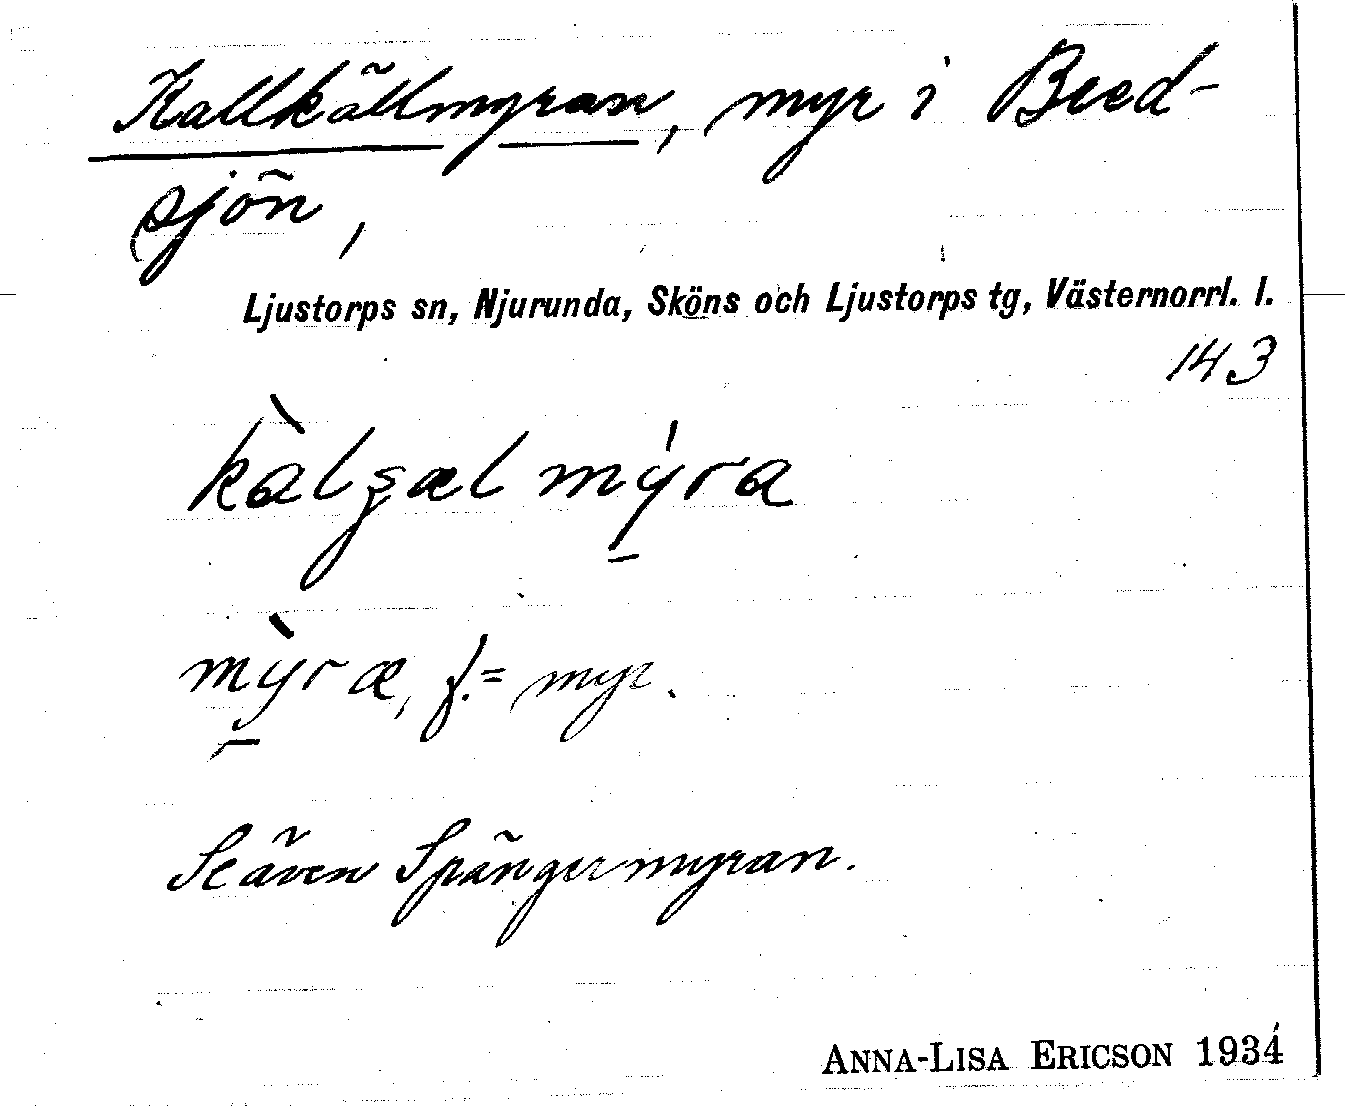 Kallkällmyran, myr i Bred-
sjön,
Ljustorps sn, Njurunda, Sköns och Ljustorps tg, Västernorrl. l.
143
mỳræ, f. = myr.
Se även Spångermyran.
ANNA-LISA ERICSON 1934